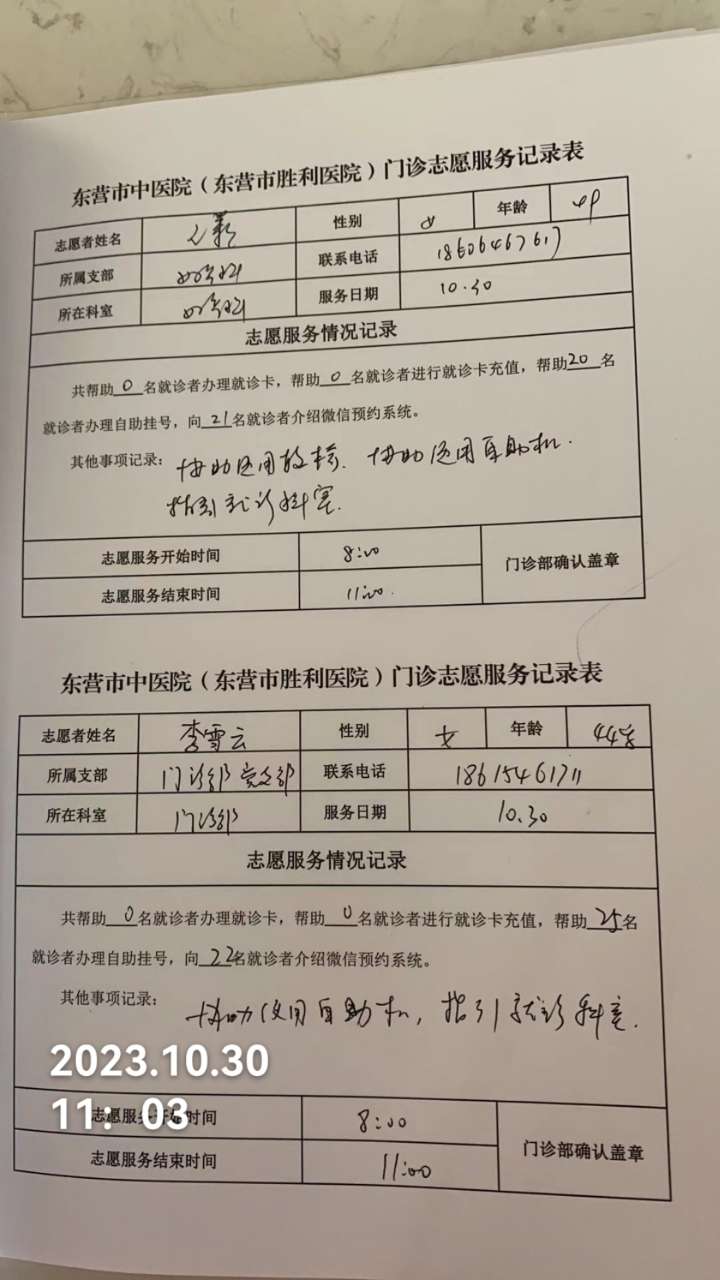 东营市中医院（东营市胜利医院）门诊志愿服务记录表
志愿者姓名 性别 女 年龄
所属支部 联系电话 18606467617
所在科室 服务日期 10.30
志愿服务情况记录
共帮助0名就诊者办理就诊卡，帮助0名就诊者进行就诊卡充值，帮助20名
就诊者办理自助挂号，向21名就诊者介绍微信预约系统。
其他事项记录：协助使用 协助使用自助机.
指引就诊科室.
志愿服务开始时间 8:00
门诊部确认盖章
志愿服务结束时间 11:00.
东营市中医院（东营市胜利医院）门诊志愿服务记录表
志愿者姓名 李雪云 性别 女 年龄 44岁
所属支部 门诊部党支部 联系电话 18615461711
所在科室 门诊部 服务日期 10.30
志愿服务情况记录
共帮助0名就诊者办理就诊卡，帮助0名就诊者进行就诊卡充值，帮助25名
就诊者办理自助挂号，向22名就诊者介绍微信预约系统。
其他事项记录：协助使用自助机，指引就诊科室.
2023.10.30
11：03
志愿服务开始时间 8:00
门诊部确认盖章
志愿服务结束时间 11:00